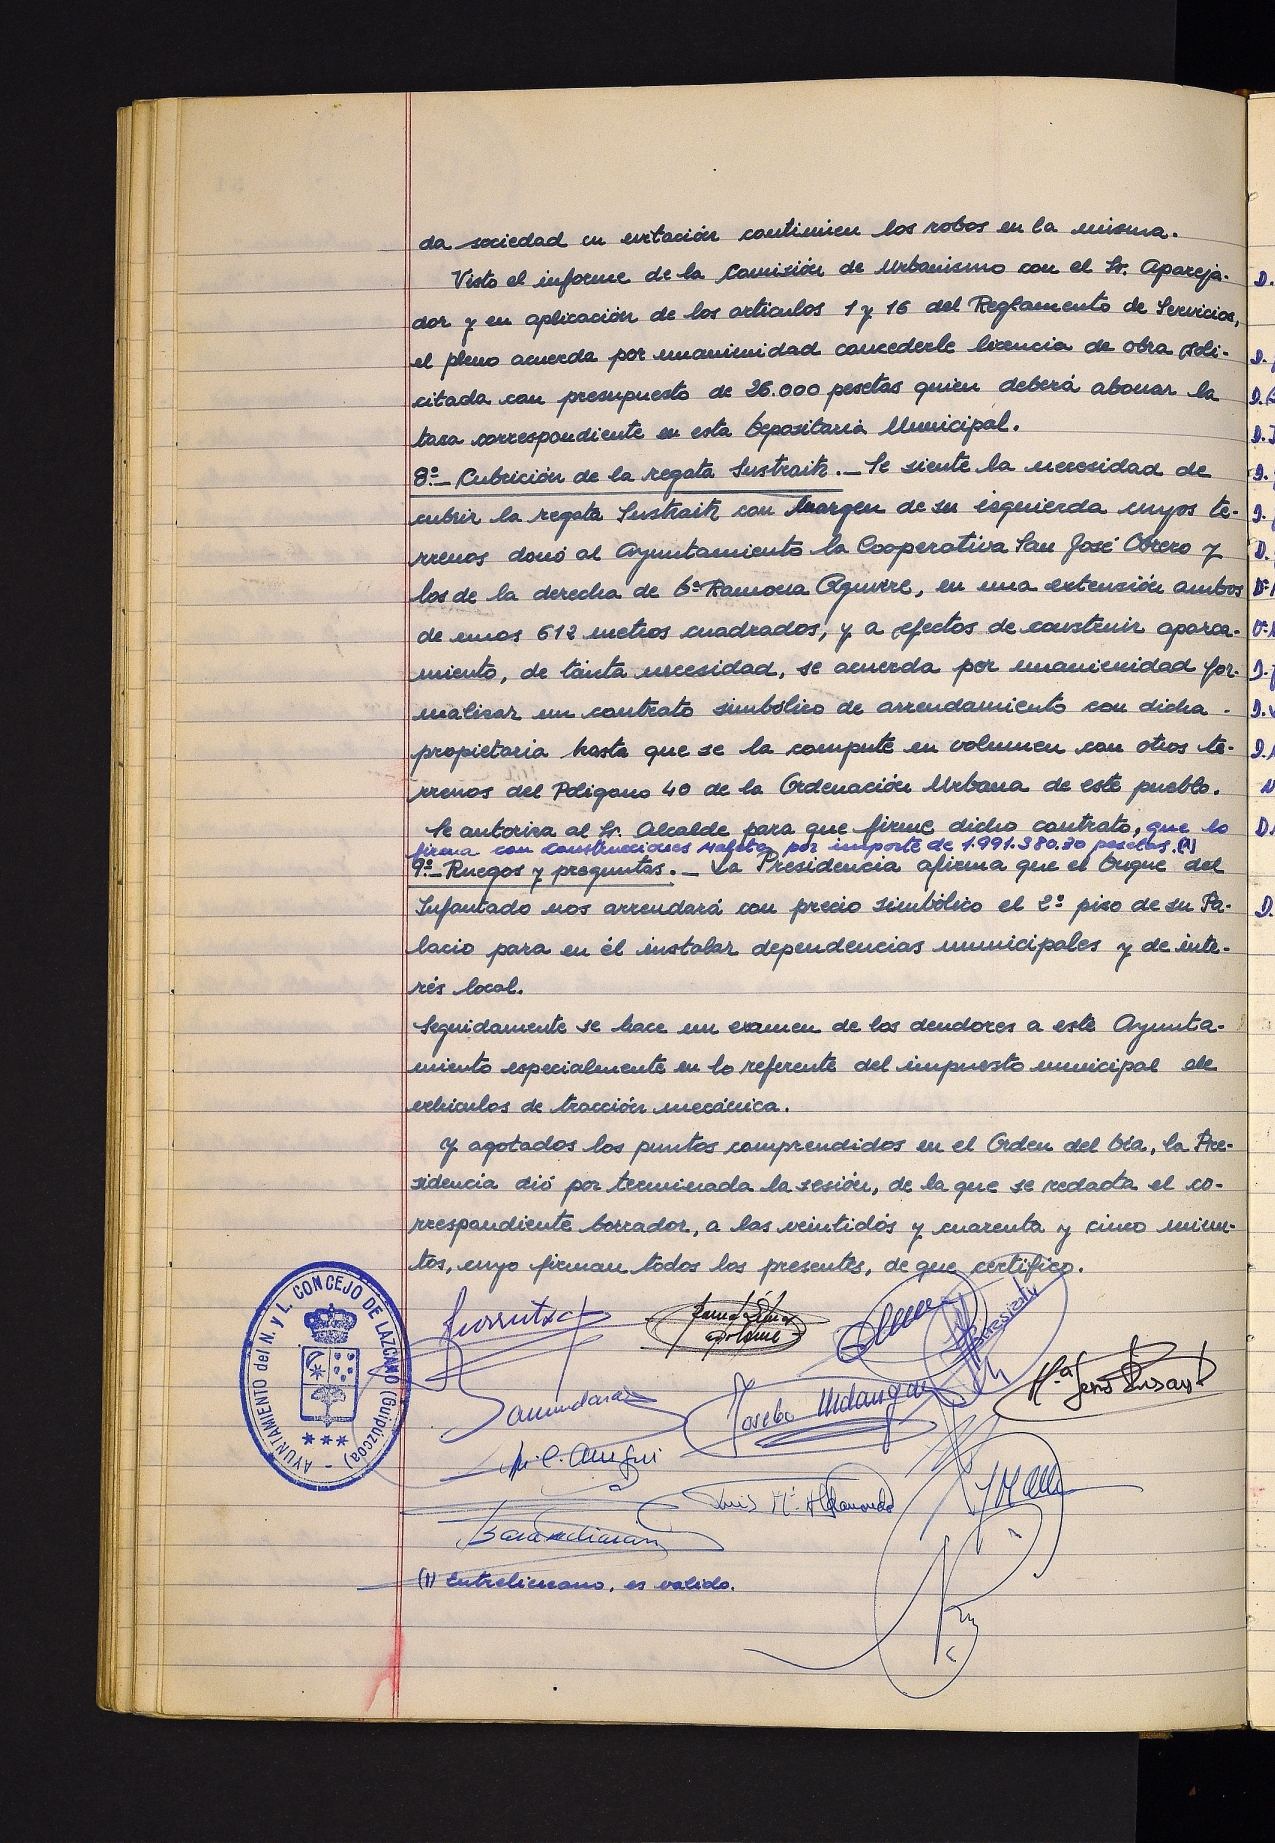 da sociedad en evitación continúen los robos en la misma.
Visto el informe de la Comisión de Urbanismo con el Sr. Apareja-
dor y en aplicación de los artículos 1 y 16 del Reglamento de Servicios,
el pleno acuerda por unanimidad concederle licencia de obra soli-
citada con presupuesto de 26.000 pesetas quien deberá abonar la
tasa correspondiente en esta Depositaria Municipal.
8º_ Cubrición de la regata Sustraitz._ Se siente la necesidad de
cubrir la regata Sustraitz con margen de su izquierda cuyos te-
rrenos donó al Ayuntamiento la Cooperativa San José Obrero y
los de la derecha de Dª Ramona Aguirre, en una extensión ambos
de unos 612 metros cuadrados, y a efectos de construir aparca-
miento, de tanta necesidad, se acuerda por unanimidad for-
malizar un contrato simbólico de arrendamiento con dicha
propietaria hasta que se la compute en volumen con otros te-
rrenos del Polígono 40 de la Ordenación Urbana de este pueblo.
Se autoriza al Sr. Alcalde para que firme dicho contrato, que lo
firma con Construcciones por importe de 1.991.380.30 pesetas.(1)
9º_ Ruegos y preguntas._ La Presidencia afirma que el Duque del
Infantado nos arrendará con precio simbólico el 2º piso de su Pa-
lacio para en él instalar dependencias municipales y de inte-
rés local.
Seguidamente se hace un examen de los deudores a este Ayunta-
miento especialmente en lo referente del impuesto municipal de
vehículos de tracción mecánica.
Y agotados los puntos comprendidos en el Orden del Día, la Pre-
sidencia dió por terminada la sesión, de la que se redacta el co-
rrespondiente borrador, a las veintidós y cuarenta y cinco minu-
tos, cuyo firman todos los presentes, de que certifico.
AYUNTAMIENTO del N. y L. CONCEJO DE LAZCANO (Guipúzcoa)
Joseba Urdangar
(1) Entrelineano, es valido.